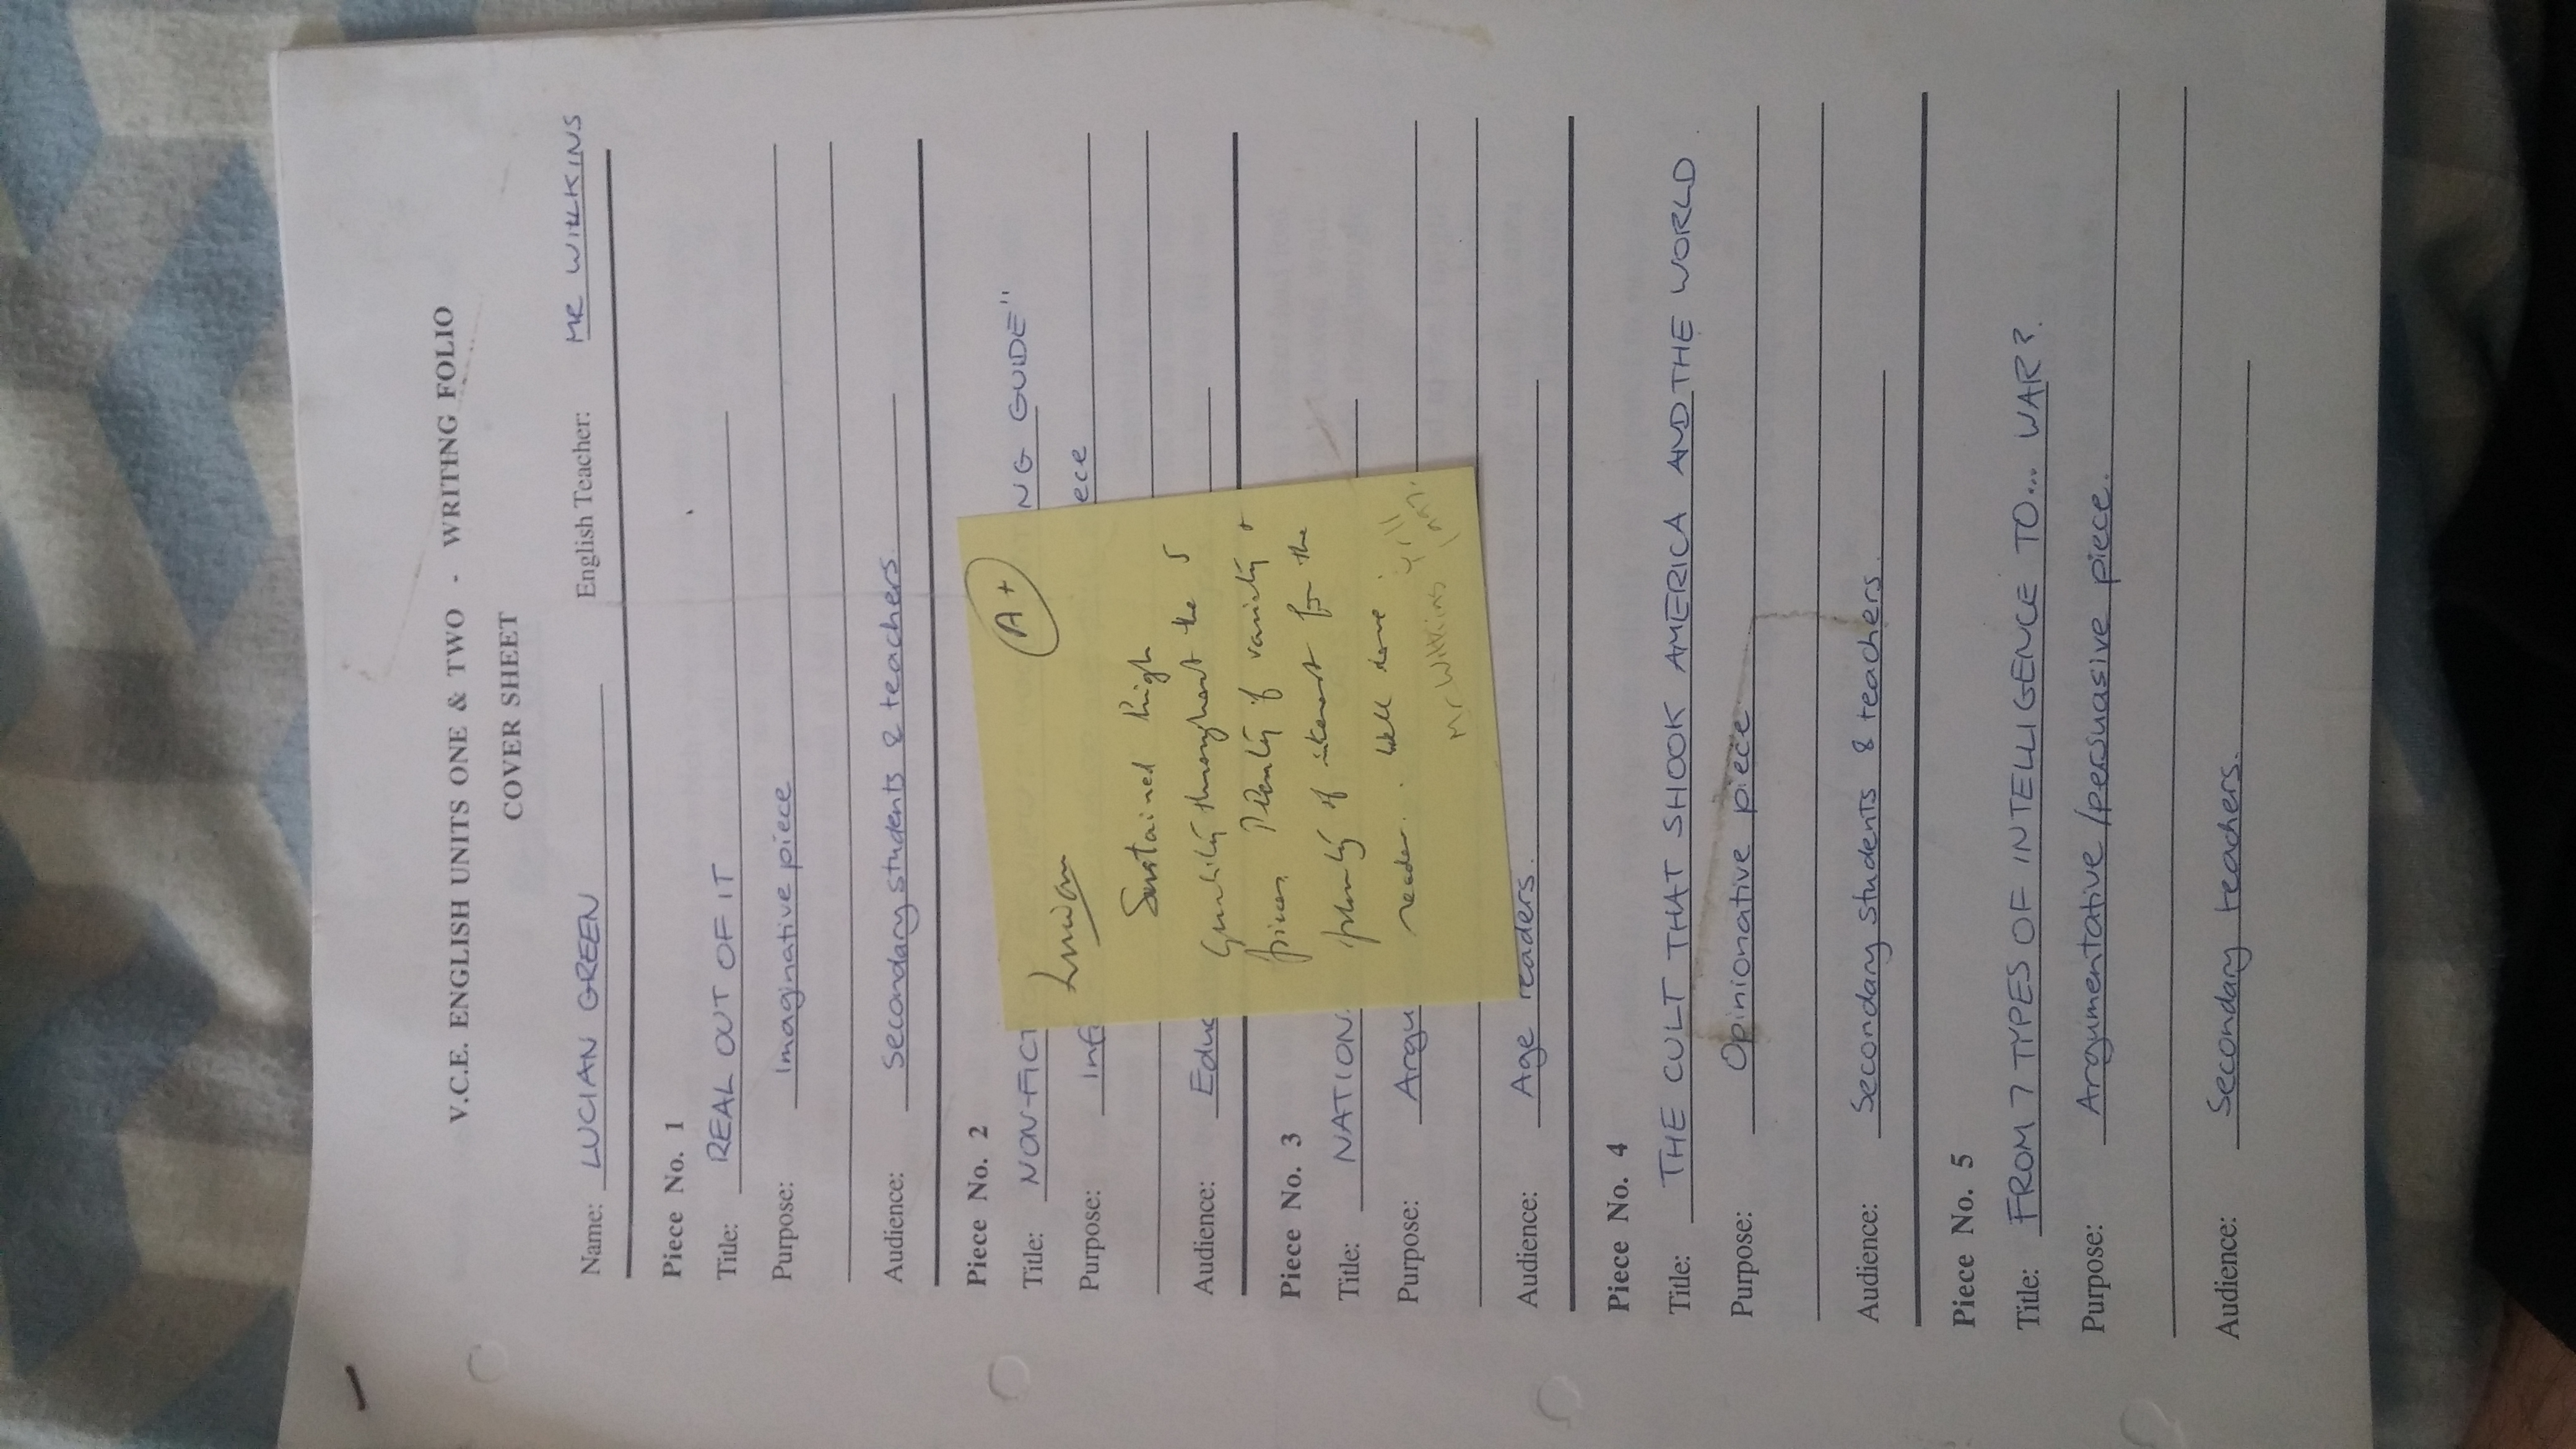 V.C.E. ENGLISH UNITS ONE & TWO - WRITING FOLIO
COVER SHEET
Name: LUCIAN GREEN English Teacher: MR WILKINS
Piece No. 1
Title: REAL OUT OF IT
Purpose: Imaginative piece
Audience: Secondary students & teachers.
Piece No. 2
Title: NON-FICT NG GUIDE"
Purpose: Inf ece
Audience: Educ
Piece No. 3
Title: NATION
Purpose: Argu
Audience: Age readers.
Piece No. 4
Title: THE CULT THAT SHOOK AMERICA AND THE WORLD.
Purpose: Opinionative piece
Audience: Secondary students & teachers.
Piece No. 5
Title: FROM 7 TYPES OF INTELLIGENCE TO... WAR?.
Purpose: Argumentative/persuasive piece.
Audience: Secondary teachers.
A+
Lucian
Sustained high
quality throughout the 5
pieces. Plenty of variety &
plenty of interest for the
reader. Well done
Mr Wilkins Yr 11